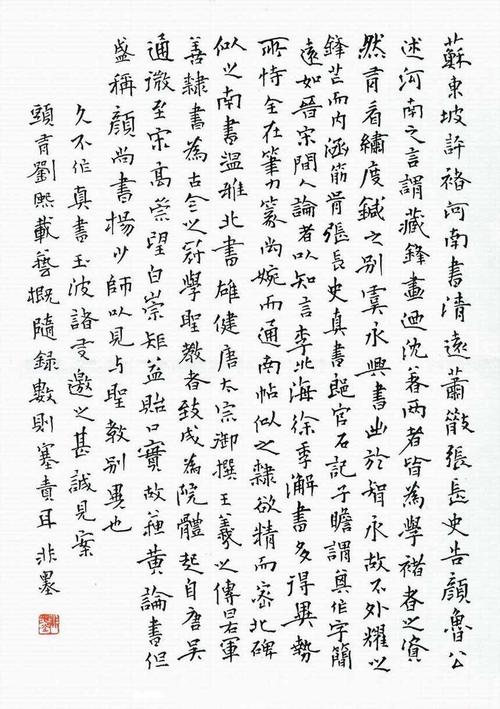 蘇東坡評褚河南書清遠蕭散張長史告顏魯公
述河南之言謂藏鋒畫迺沈著两者皆為學褚者之資
然有看繡度鍼之别虞永興書出於智永故不外耀以
鋒芒而内涵筋骨張長史真書郎官石記子瞻謂其作字簡
遠如晉宋間人論者以知言李北海徐季海書多得異勢
所恃全在筆力篆尚婉而通南帖似之隸欲精而密北碑
似之南書温雅北書雄健唐太宗御撰王羲之傳曰右軍
善隸書為古今之冠學聖教者致成為院體起自唐吳
通微至宋高崇望白崇矩益貽口實故蘇黄論書但
盛稱顏尚書楊少師以見与聖教别異也
久不作真書玉波諸友邀之甚誠見案
頭有劉熙載藝概隨録數則塞責耳非墨